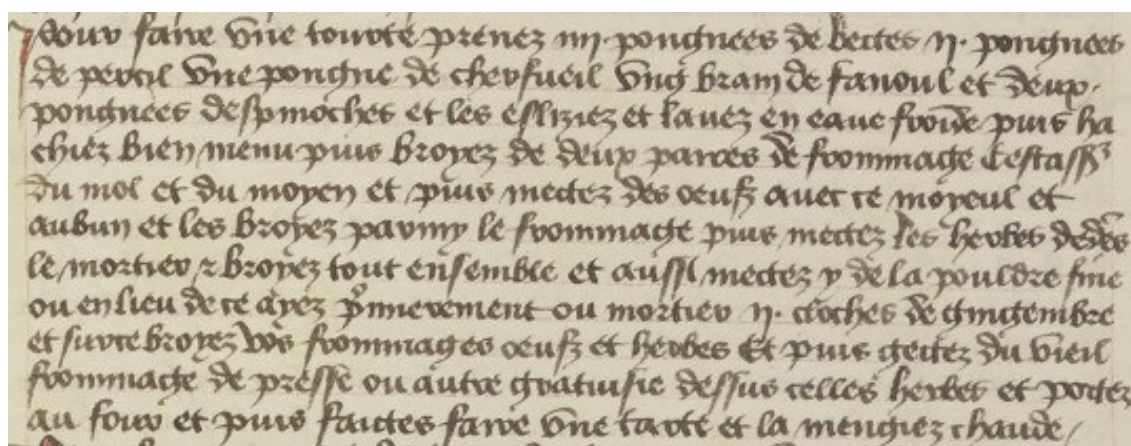 Pour faire vne tourte prenez iiij. pongnees de bectes ij. pongnees
de percil vne pongne de cherfueil vng bram de fanoul et deux.
pongnees despinoches et les esliziez et lauez en eaue froide puis ha
chiez bien menu puis broyez de deux parees de frommage Cestass̃
du mol et du moyen et puis mectez des oeufz auec ce moyeul et
aubun et les broyez parmy le frommage puis mectez les herbes dedẽs
le mortier ⁊ broyez tout ensemble et aussi mectez y de la pouldre fine
ou en lieu de ce ayez p̃mierement ou mortier ij. cloches de gingembre
et surce broyez vos frommages oeufz et herbes Et puis gectez du vieil
frommage de presse ou autre gratuisie dessus celles herbes et portez
au four et puis faictes faire vne tarte et la mengiez chaude /